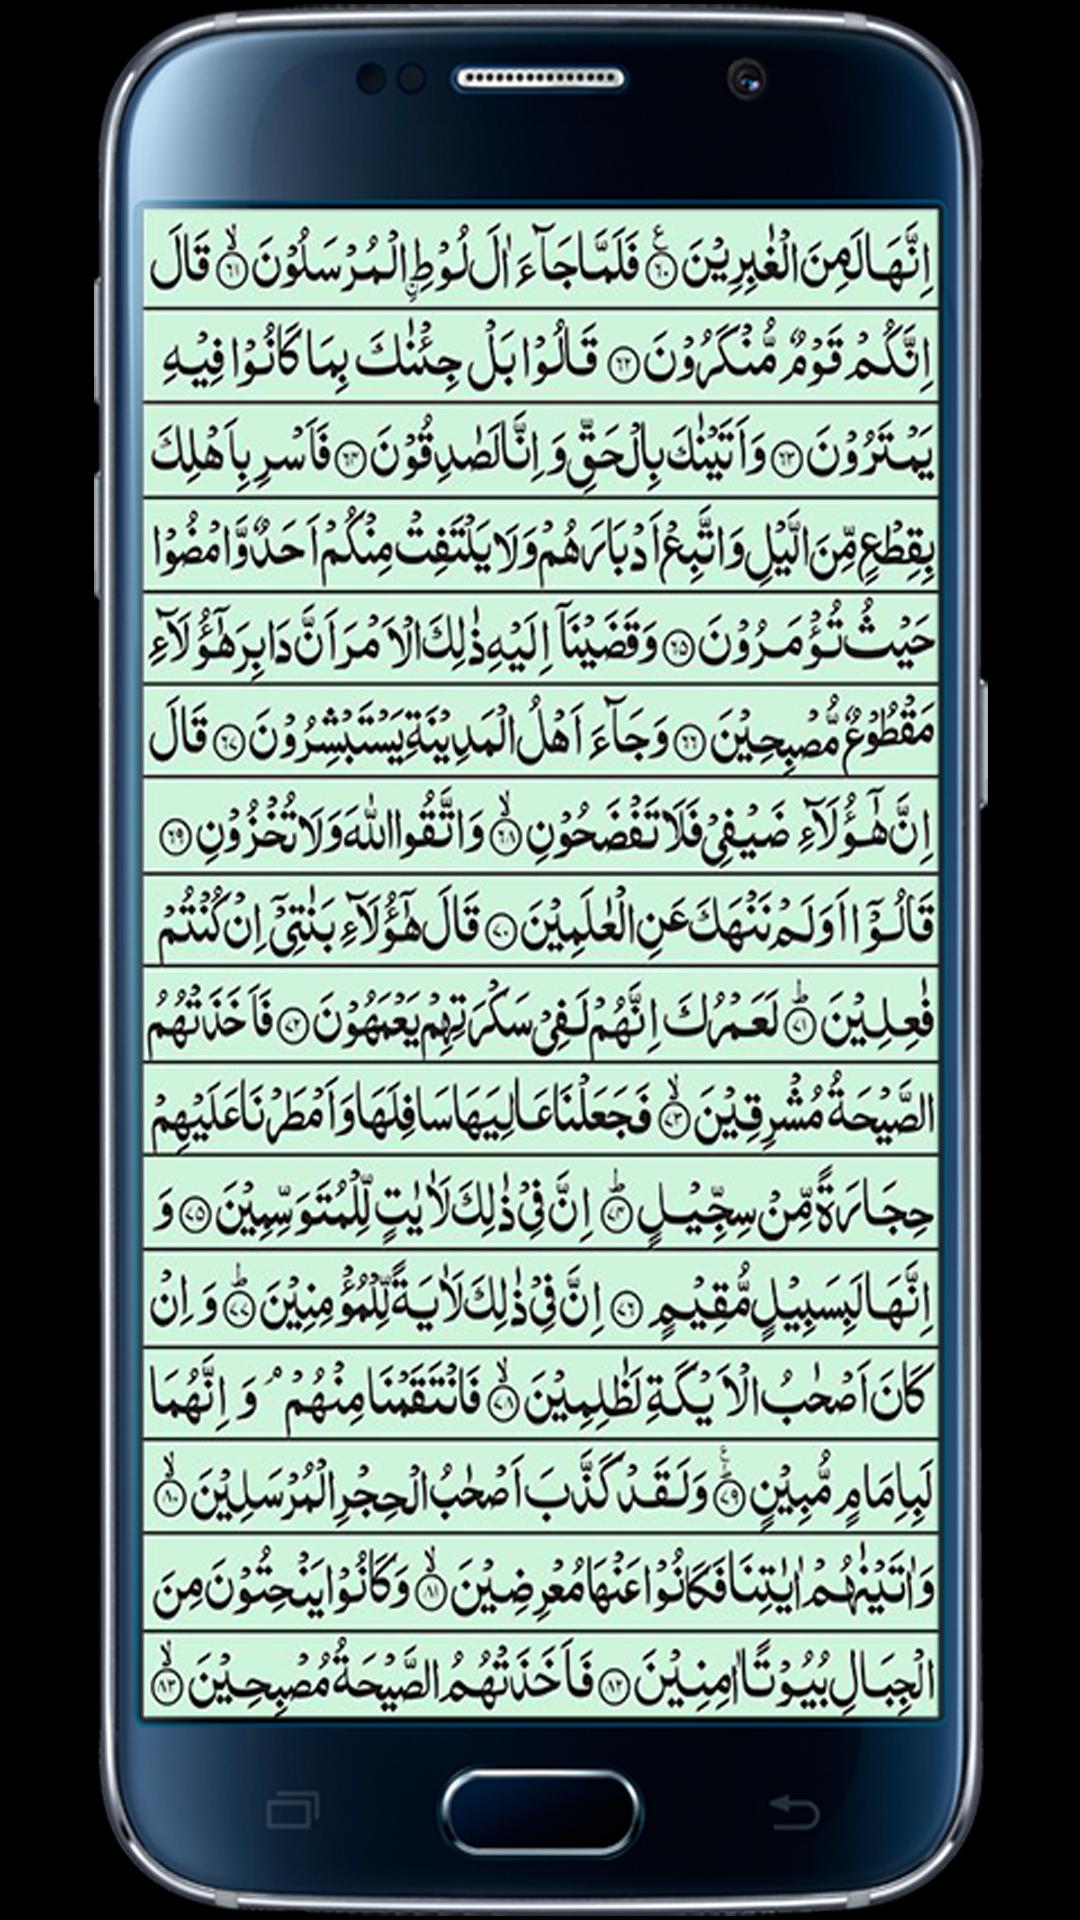 اِنَّهَا لَمِنَ الْغٰبِرِيْنَ ۝۶۰ ع فَلَمَّا جَآءَ اٰلَ لُوْطِ ِ۟الْمُرْسَلُوْنَ ۝۶۱ ۙ قَالَ
اِنَّكُمْ قَوْمٌ مُّنْكَرُوْنَ ۝۶۲ قَالُوْا بَلْ جِئْنٰكَ بِمَا كَانُوْا فِيْهِ
يَمْتَرُوْنَ ۝۶۳ وَاَتَيْنٰكَ بِالْحَقِّ وَ اِنَّا لَصٰدِقُوْنَ ۝۶۴ فَاَسْرِ بِاَهْلِكَ
بِقِطْعٍ مِّنَ الَّيْلِ وَاتَّبِعْ اَدْبَارَهُمْ وَلَا يَلْتَفِتْ مِنْكُمْ اَحَدٌ وَّامْضُوْا
حَيْثُ تُؤْمَرُوْنَ ۝۶۵ وَقَضَيْنَآ اِلَيْهِ ذٰلِكَ الْاَمْرَ اَنَّ دَابِرَ هٰٓؤُلَآءِ
مَقْطُوْعٌ مُّصْبِحِيْنَ ۝۶۶ وَجَآءَ اَهْلُ الْمَدِيْنَةِ يَسْتَبْشِرُوْنَ ۝۶۷ قَالَ
اِنَّ هٰٓؤُلَآءِ ضَيْفِيْ فَلَا تَفْضَحُوْنِ ۝۶۸ ۙ وَاتَّقُوا اللّٰهَ وَلَا تُخْزُوْنِ ۝۶۹
قَالُوْٓا اَوَلَمْ نَنْهَكَ عَنِ الْعٰلَمِيْنَ ۝۷۰ قَالَ هٰٓؤُلَآءِ بَنٰتِيْٓ اِنْ كُنْتُمْ
فٰعِلِيْنَ ۝۷۱ ؕ لَعَمْرُكَ اِنَّهُمْ لَفِيْ سَكْرَتِهِمْ يَعْمَهُوْنَ ۝۷۲ فَاَخَذَتْهُمُ
الصَّيْحَةُ مُشْرِقِيْنَ ۝۷۳ ۙ فَجَعَلْنَا عَالِيَهَا سَافِلَهَا وَاَمْطَرْنَا عَلَيْهِمْ
حِجَارَةً مِّنْ سِجِّيْلٍ ۝۷۴ ؕ اِنَّ فِيْ ذٰلِكَ لَاٰيٰتٍ لِّلْمُتَوَسِّمِيْنَ ۝۷۵ وَ
اِنَّهَا لَبِسَبِيْلٍ مُّقِيْمٍ ۝۷۶ اِنَّ فِيْ ذٰلِكَ لَاٰيَةً لِّلْمُؤْمِنِيْنَ ۝۷۷ ؕ وَ اِنْ
كَانَ اَصْحٰبُ الْاَيْكَةِ لَظٰلِمِيْنَ ۝۷۸ ۙ فَانْتَقَمْنَا مِنْهُمْ ۘ وَ اِنَّهُمَا
لَبِاِمَامٍ مُّبِيْنٍ ۝۷۹ ؕ ع وَلَقَدْ كَذَّبَ اَصْحٰبُ الْحِجْرِ الْمُرْسَلِيْنَ ۝۸۰ ۙ
وَاٰتَيْنٰهُمْ اٰيٰتِنَا فَكَانُوْا عَنْهَا مُعْرِضِيْنَ ۝۸۱ ۙ وَكَانُوْا يَنْحِتُوْنَ مِنَ
الْجِبَالِ بُيُوْتًا اٰمِنِيْنَ ۝۸۲ فَاَخَذَتْهُمُ الصَّيْحَةُ مُصْبِحِيْنَ ۝۸۳ ۙ